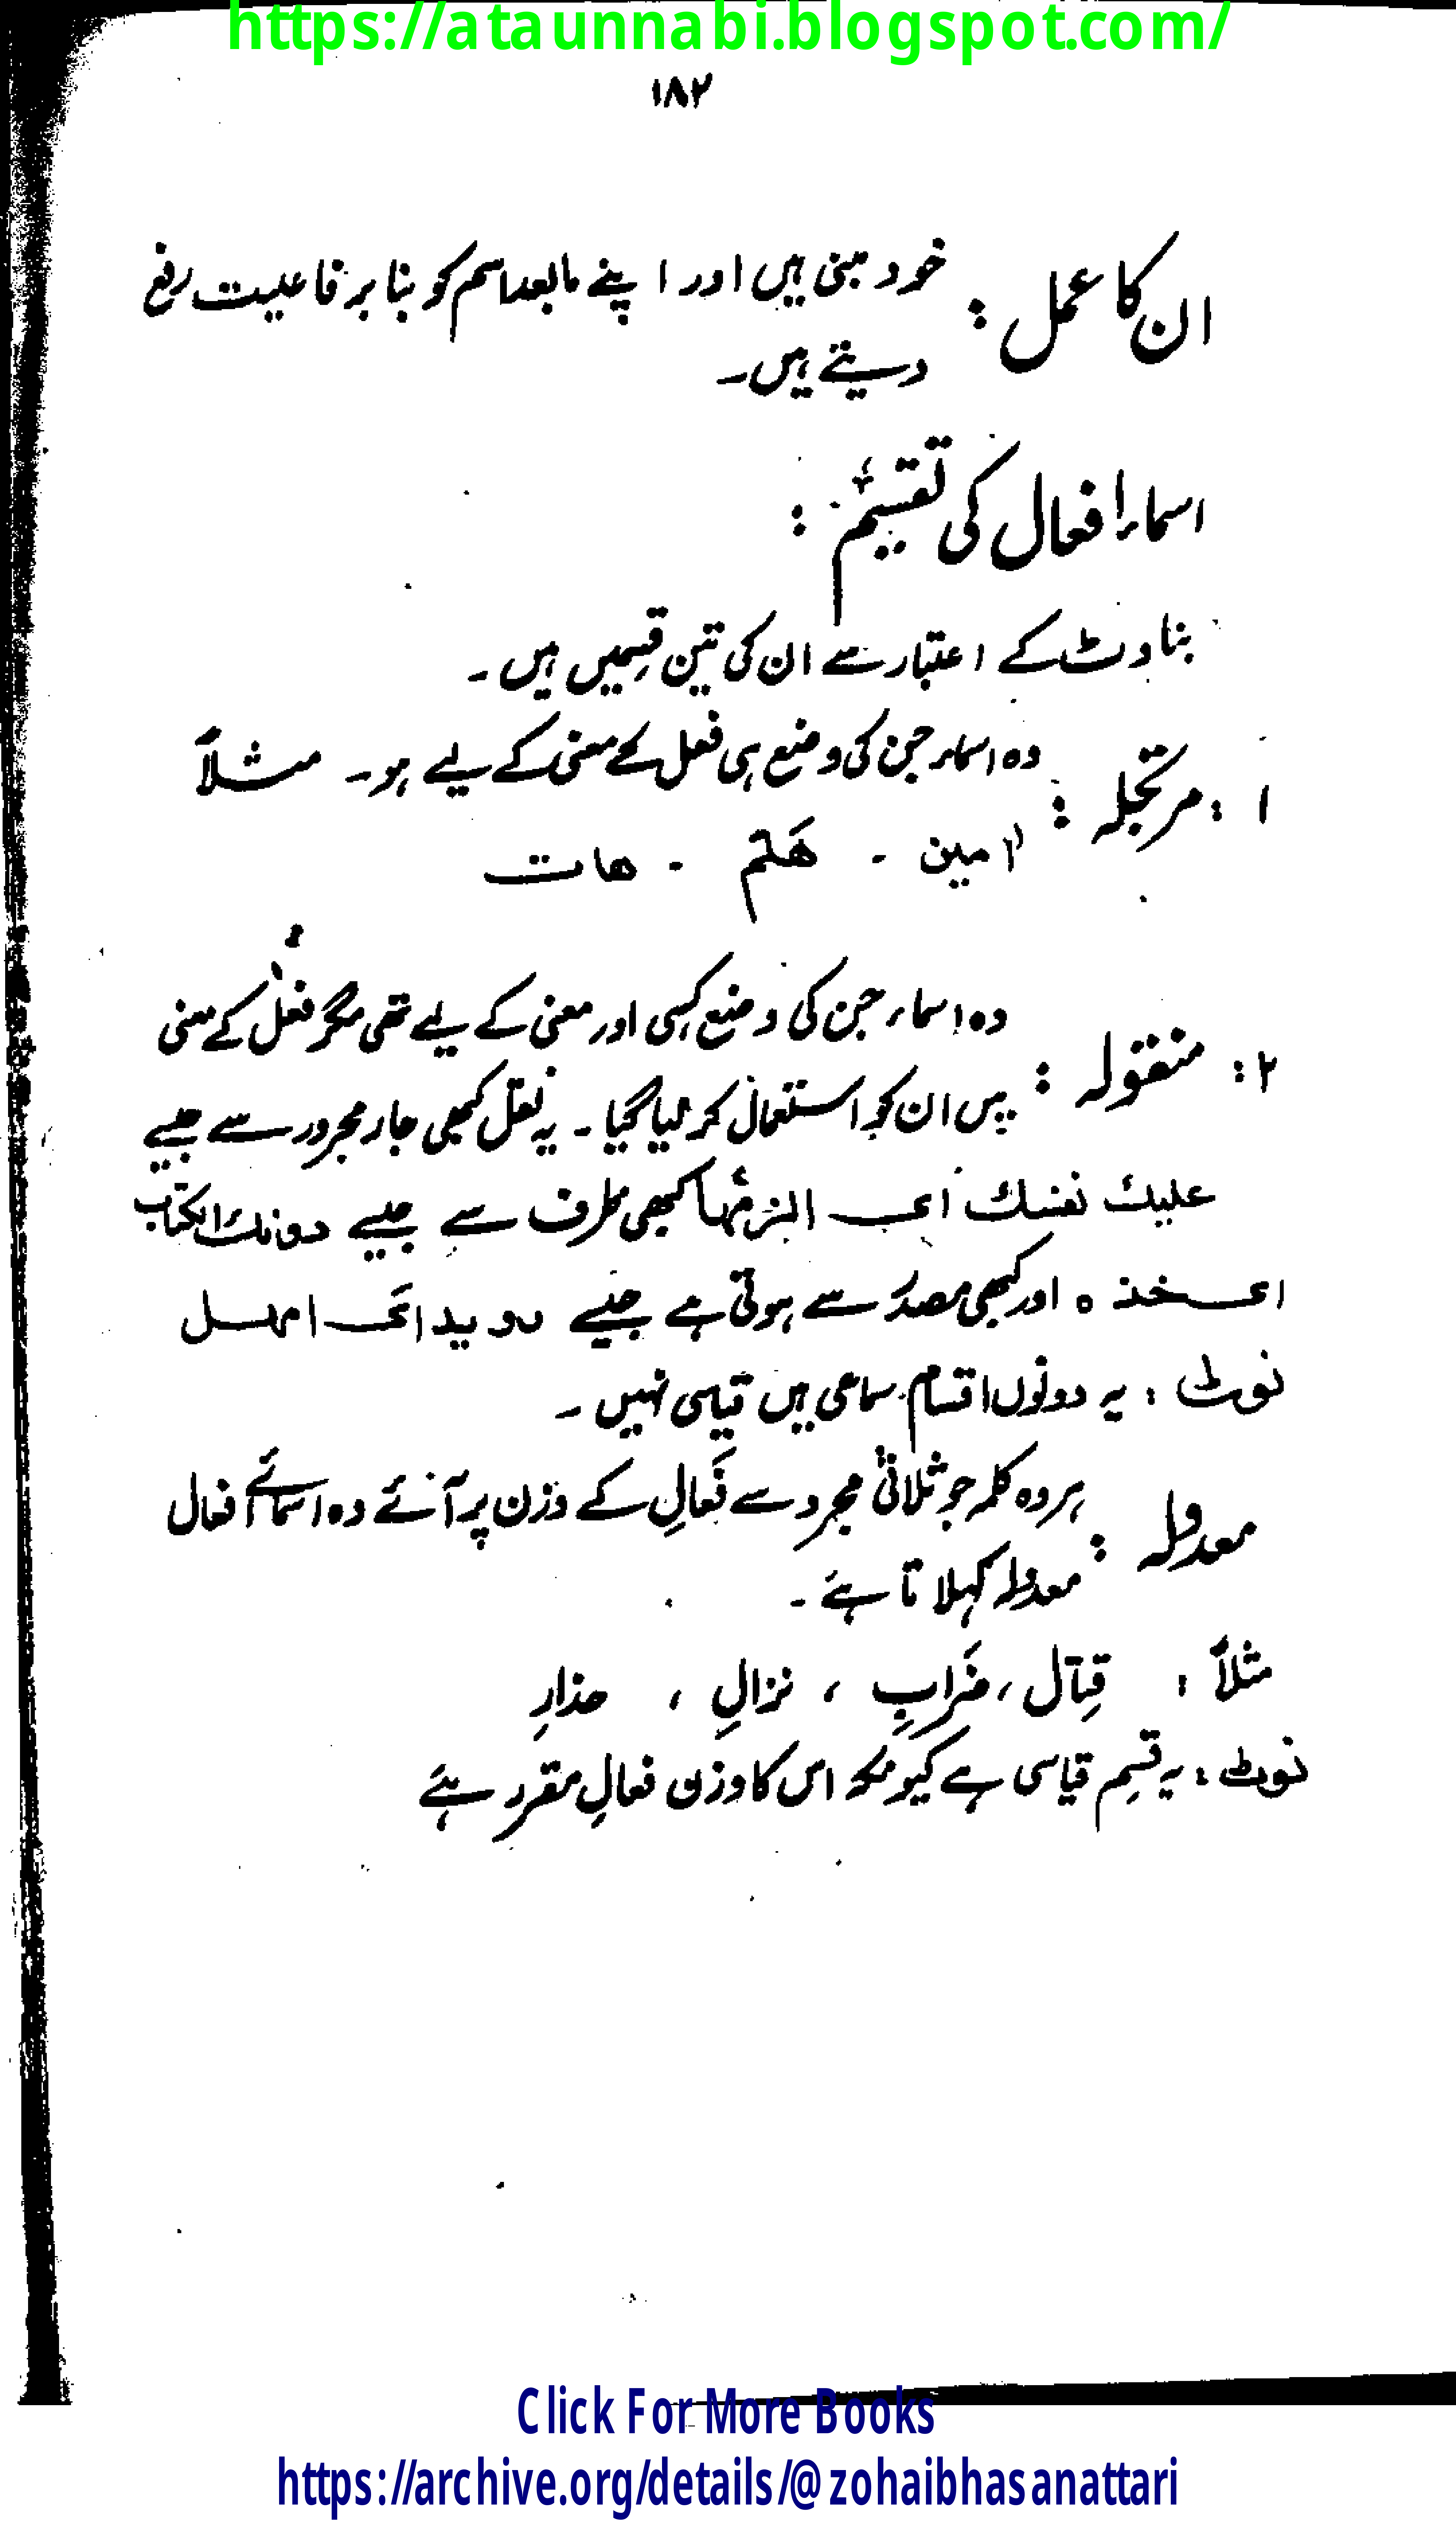 https://ataunnabi.blogspot.com/
۱۸۲
ان کا عمل : خود مبنی ہیں اور اپنے مابعد اسم کو بنا بر فاعلیت رفع
دیتے ہیں۔
اسماء افعال کی تقسیم :
بناوٹ کے اعتبار سے ان کی تین قسمیں ہیں ۔
۱ : مرتجلہ : وہ اسماء جن کی وضع ہی فعل کے معنی کے لیے ہو۔ مثلاً
اٰمین ۔ هَلُمّ ۔ هات
۲ : منقولہ : وہ اسماء جن کی وضع کسی اور معنی کے لیے تھی مگر فعل کے معنی
میں ان کو استعمال کر لیا گیا ۔ یہ نقل کبھی جار مجرور سے جیسے
علیك نفسك ای الزمها کبھی ظرف سے جیسے دونك الکتاب
ای خذہ اور کبھی مصدر سے ہوتی ہے جیسے رویدا ای امهل
نوٹ : یہ دونوں اقسام سماعی ہیں قیاسی نہیں ۔
معدولہ : ہر وہ کلمہ جو ثلاثی مجرد سے فَعَالِ کے وزن پر آئے وہ اسمائے افعال
معدولہ کہلاتا ہے ۔
مثلاً : قِتَال ، ضَرَابِ ، نزالِ ، حذارِ
نوٹ : یہ قسم قیاسی ہے کیونکہ اس کا وزن فعالِ مقرر ہے
Click For More Books
https://archive.org/details/@zohaibhasanattari